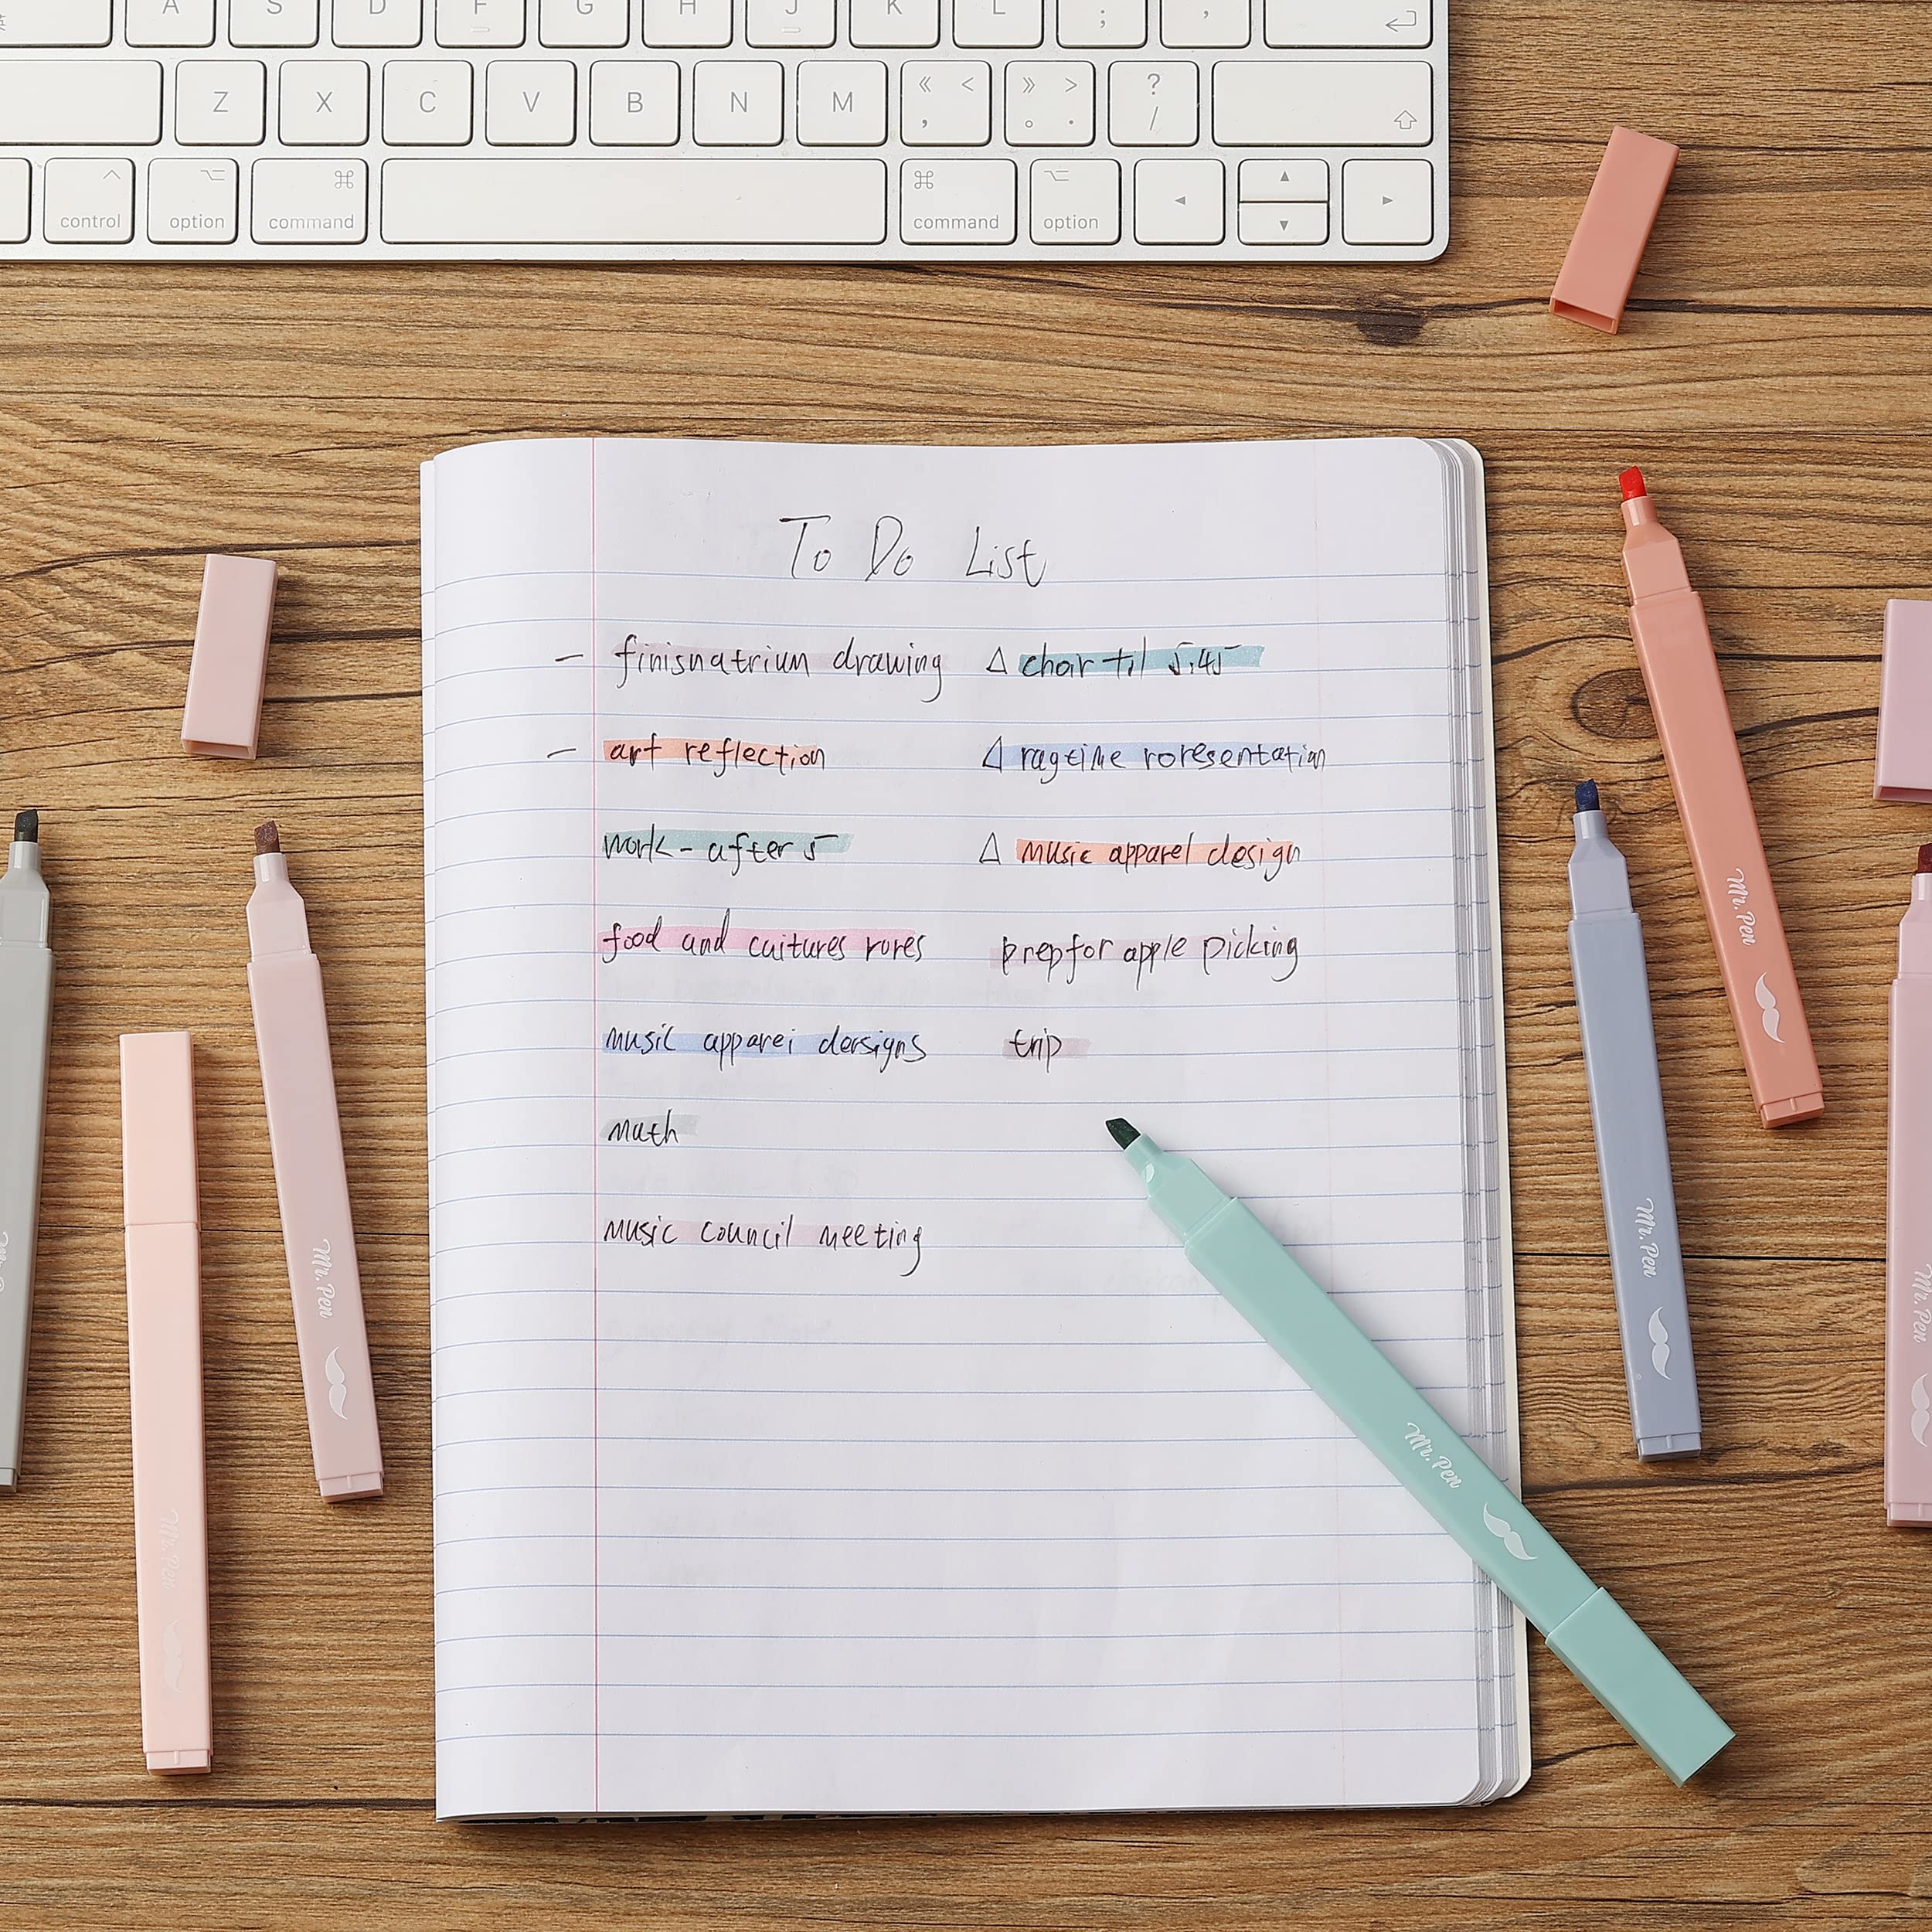 A S D F G H J K L ; ,
Z X C V B N M « < , » > 。 . ? /
control option command command option
To Do List
- finisnatrium drawing
- art reflection
work - after 5
food and cuitures rores
music apparei dersigns
math
music council meeting
Δ choir til 5:45
Δ ragtime roresentation
Δ music apparel design
prep for apple picking
trip
Mr. Pen
Mr. Pen
Mr. Pen
Mr. Pen
Mr. Pen
Mr. Pen